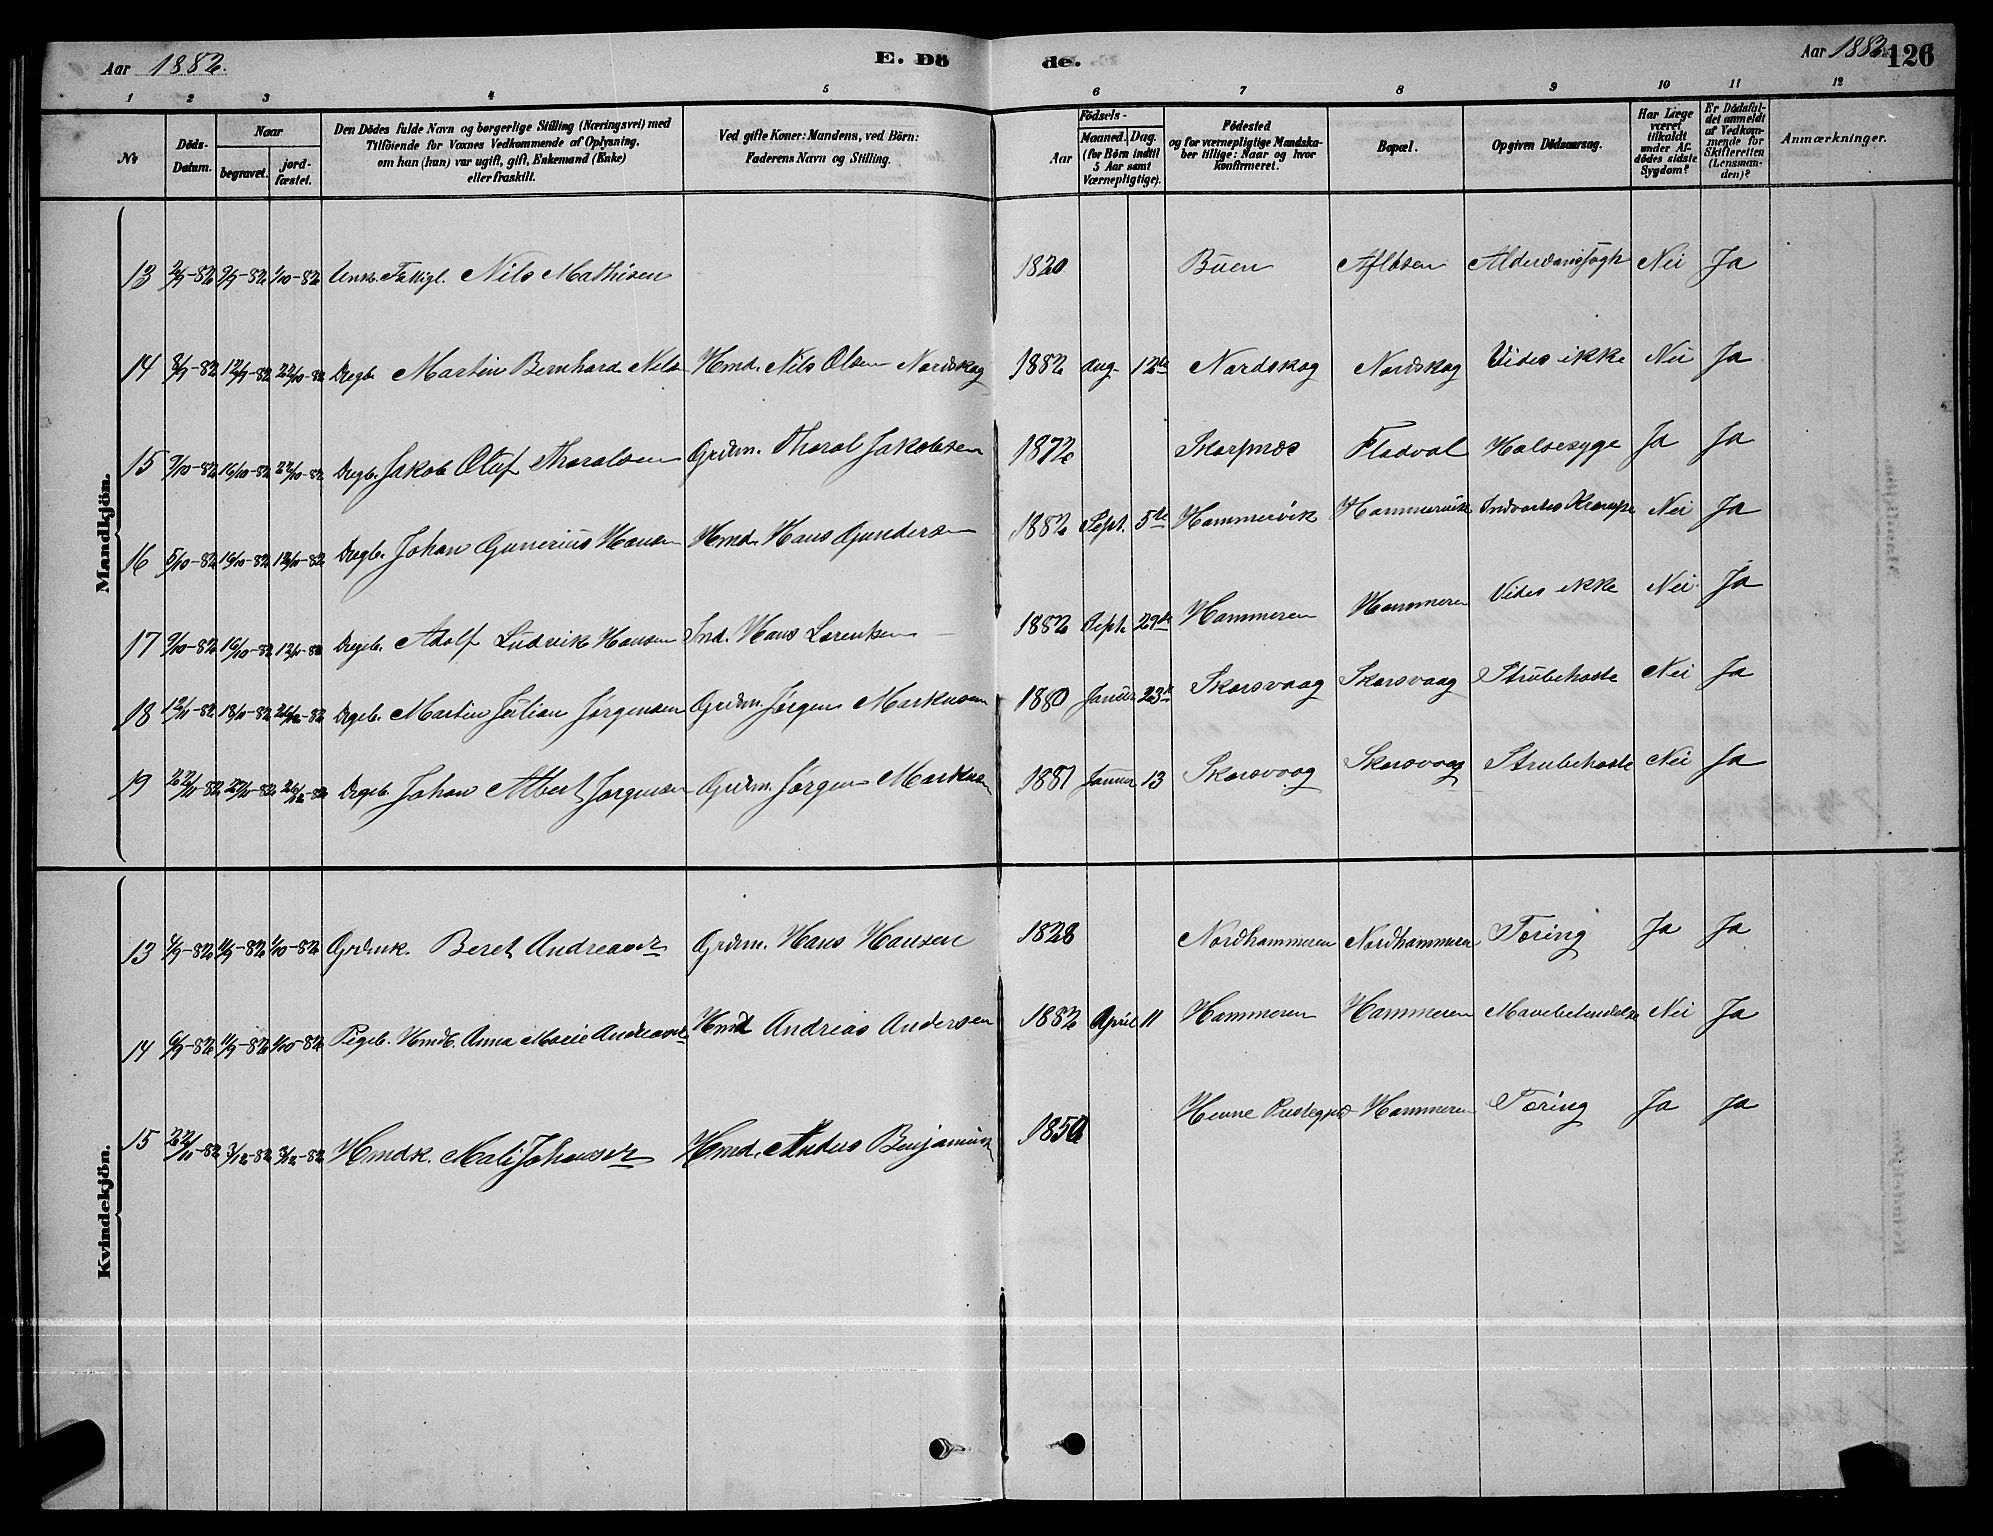 Aar 1882.
E. Dö de.
Aar 1882. 126
1 2 3 4 5 6 7 8 9 10 11 12
No
Döds-Datum.
Naar
begravet.
jord-fæstet.
Den Dödes fulde Navn og borgerlige Stilling (Næringsvei) med
Tilföiende for Voxnes Vedkommende af Oplysning,
om han (hun) var ugift, gift, Enkemand (Enke)
eller fraskilt.
Ved gifte Koner: Mandens, ved Börn:
Faderens Navn og Stilling.
Födsels-
Aar
Maaned. Dag.
(for Börn indtil
5 Aar samt
Værnepligtige).
Födested
og for værnepligtige Mandska-
ber tillige: Naar og hvor
konfirmeret.
Bopæl.
Opgiven Dödsaarsag.
Har Læge
været
tilkaldt
under Af-
dödes sidste
Sygdom?
Er Dödsfal-
det anmeldt
af Vedkom-
mende for
Skifteretten
(Lensman-
den)?
Anmærkninger.
Mandkjön.
13 -82 -82 1/10-82 Nils Mathisen 1820 Buen Aflösen Nei Ja
14 8/9-82 12/9-82 22/10-82 Drgb. Martin Bernhard Nils Hmd. Nils Olsen Nordskog 1882 Aug. 12te Nordskog Nordskog Vides ikke Nei Ja
15 /10-82 16/10-82 22/10-82 Drgb. Jakob Oluf Tharalsen Grdm. Tharal Jakobsen 1872 Skarpnes Fladval Halsesyge Ja Ja
16 5/10-82 16/10-82 12/11-82 Drgb. Johan Gunerius Hansen Hmd. Hans Gundersen 1882 Sept. 5te Hammervik Hammervik Indvortes Krampe Nei Ja
17 9/10-82 16/10-82 12/11-82 Drgb. Adolf Ludvik Hansen Ind. Hans Lorentsen 1882 Sept. 29de Hammeren Hammeren Vides ikke Nei Ja
18 12/11-82 -82 26/12-82 Drgeb. Martin Julian Jörgensen Grdm. Jörgen Markusen 1880 Januar 23de Skarsvaag Skarsvaag Strubehoste Nei Ja
19 22/11-82 29/11-82 26/12-82 Drgeb. Johan Albert Jörgensen Grdm. Jörgen Markusen 1881 Januar 13 Skarsvaag Skarsvaag Strubehoste Nei Ja
Kvindekjön.
13 -82 11/9-82 1/10-82 Grdmk. Beret Andreasdr Grdm. Hans Hansen 1828 Nordhammeren Nordhammeren Tæring Ja Ja
14 6/9-82 11/9-82 1/10-82 Pigeb. Hmdb. Anna Marie Andreasdr Hmd Andreas Andersen 1882 April 11 Hammeren Hammeren Mavebetændelse Nei Ja
15 22/11-82 3/12-82 3/12-82 Hmdk. Mali Johansdr Hmd. Anders Benjaminsen 1850 Hevne Præstegjeld Hammeren Tæring Ja Ja